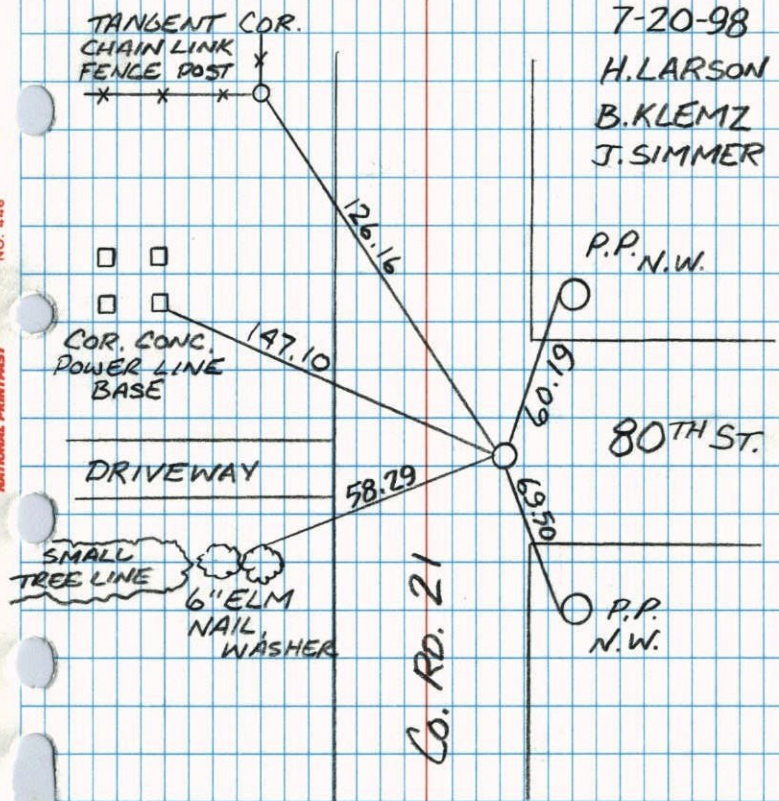 TANGENT COR.
CHAIN LINK
FENCE POST
7-20-98
H. LARSON
B. KLEMZ
J. SIMMER
126.16
P.P. N.W.
COR. CONC.
POWER LINE
BASE
147.10
60.19
80TH ST.
DRIVEWAY
58.29
69.50
SMALL
TREE LINE
6" ELM
NAIL,
WASHER
CO. RD. 21
P.P.
N.W.
NO. 448